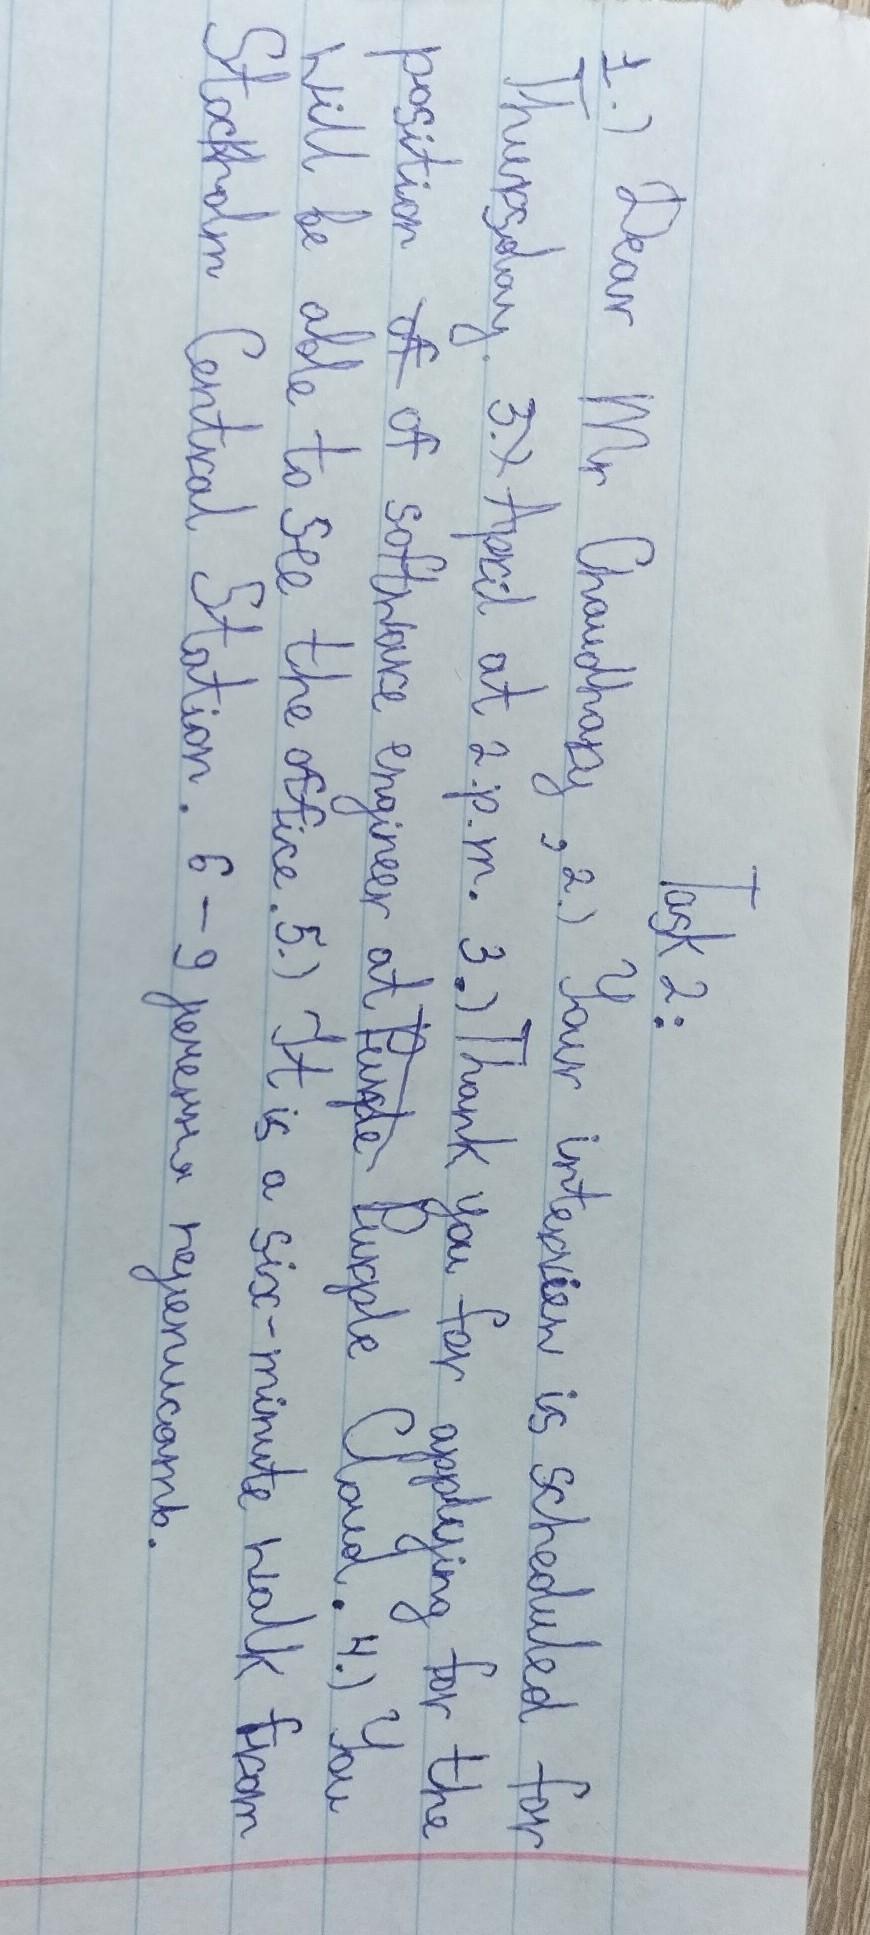 Task 2:
1.) Dear Mr Chaudhary, 2.) Your interview is scheduled for
Thursday. 3.) April at 2.p.m. 3.) Thank you for applying for the
position of of software engineer at Purple Purple Cloud. 4.) You
will be able to see the office. 5.) It is a six-minute walk from
Stockholm Central Station. 6 - 9 речення переписать.